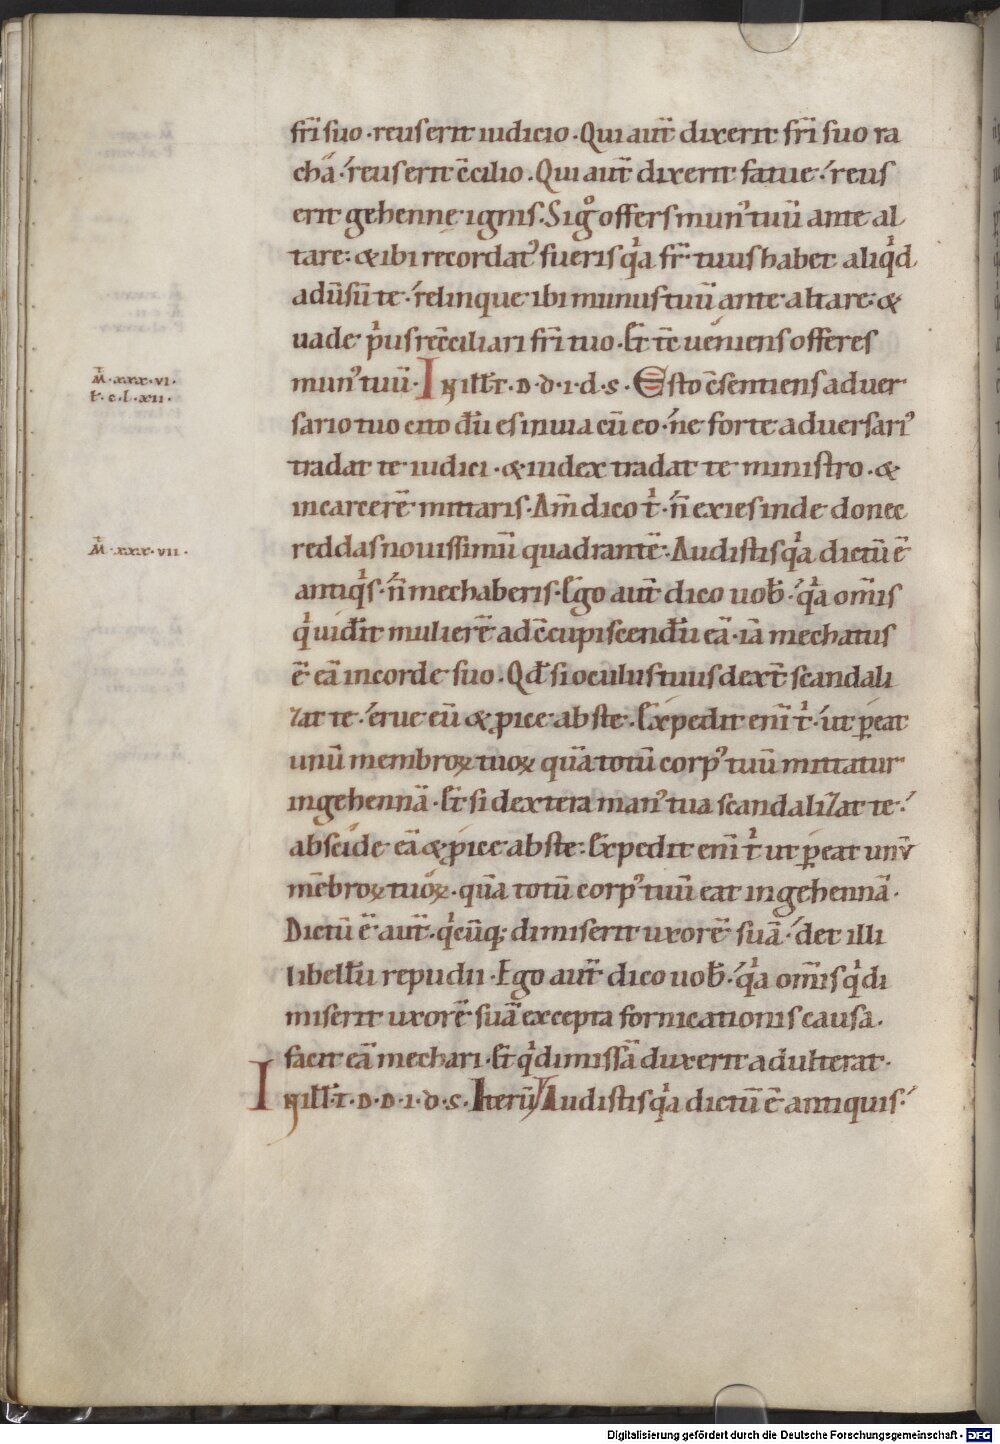 fr̄i suo · reus erit iudicio · Qui aut̄ dixerit fr̄i suo ra
cha · reus erit c̄cilio · Qui aut̄ dixerit fatue · reus
erit gehenne ignis · Si gͦ offers munꝰ tuū ante al
tare · & ibi recordatꝰ fueris qͥa fr̄ tuus habet aliqͥd
adūsū te · relinque ibi munus tuū ante altare &
uade pͥus rec̄ciliari fr̄i tuo · Et t̄c ueniens offeres
M̄ · xxx · vi ·
L · c · l · xii ·
munꝰ tuū · In illt̄ · D · d · i · d · s · Esto c̄sentiens aduer
sario tuo cito dū es in uia cū eo · ne forte aduersariꝰ
tradat te iudici · & iudex tradat te ministro · &
in carcerē mittaris · Am̄ dico tͥ · n̄ exies inde donec
M̄ · xxx · vii ·
reddas nouissimū quadrantē · Audistis qͥa dictū ē
antiqͥs · n̄ mechaberis · Ego aut̄ dico uob̄ · qͥa om̄is
qͥ uiderit mulierē ad c̄cupiscendū eā · iā mechatus
ē eā in corde suo · Qd̄ si oculus tuus dext̄ scandali
zat te · erue eū & ꝓice abs te · Expedit eni̅ tͥ · ut ꝑeat
unū membroꝝ tuoꝝ quā totū corpꝰ tuū mittatur
in gehennā · Et si dextera manꝰ tua scandalizat te ·
abscide eā & ꝓice abs te · Expedit eni̅ tͥ ut ꝑeat unū
mēbroꝝ tuoꝝ · quā totū corpꝰ tuū eat in gehennā ·
Dictū ē aut̄ · qͥcūq; dimiserit uxorē suā · det illi
libellū repudii · Ego aut̄ dico uob̄ · qͥa om̄is qͥ di
miserit uxorē suā excepta fornicationis causa ·
facit eā mechari · Et qͥ dimissā duxerit adulterat ·
In illt̄ · D · D · I · D · S · Iterū Audistis qͥa dictū ē antiquis ·
Digitalisierung gefördert durch die Deutsche Forschungsgemeinschaft · DFG